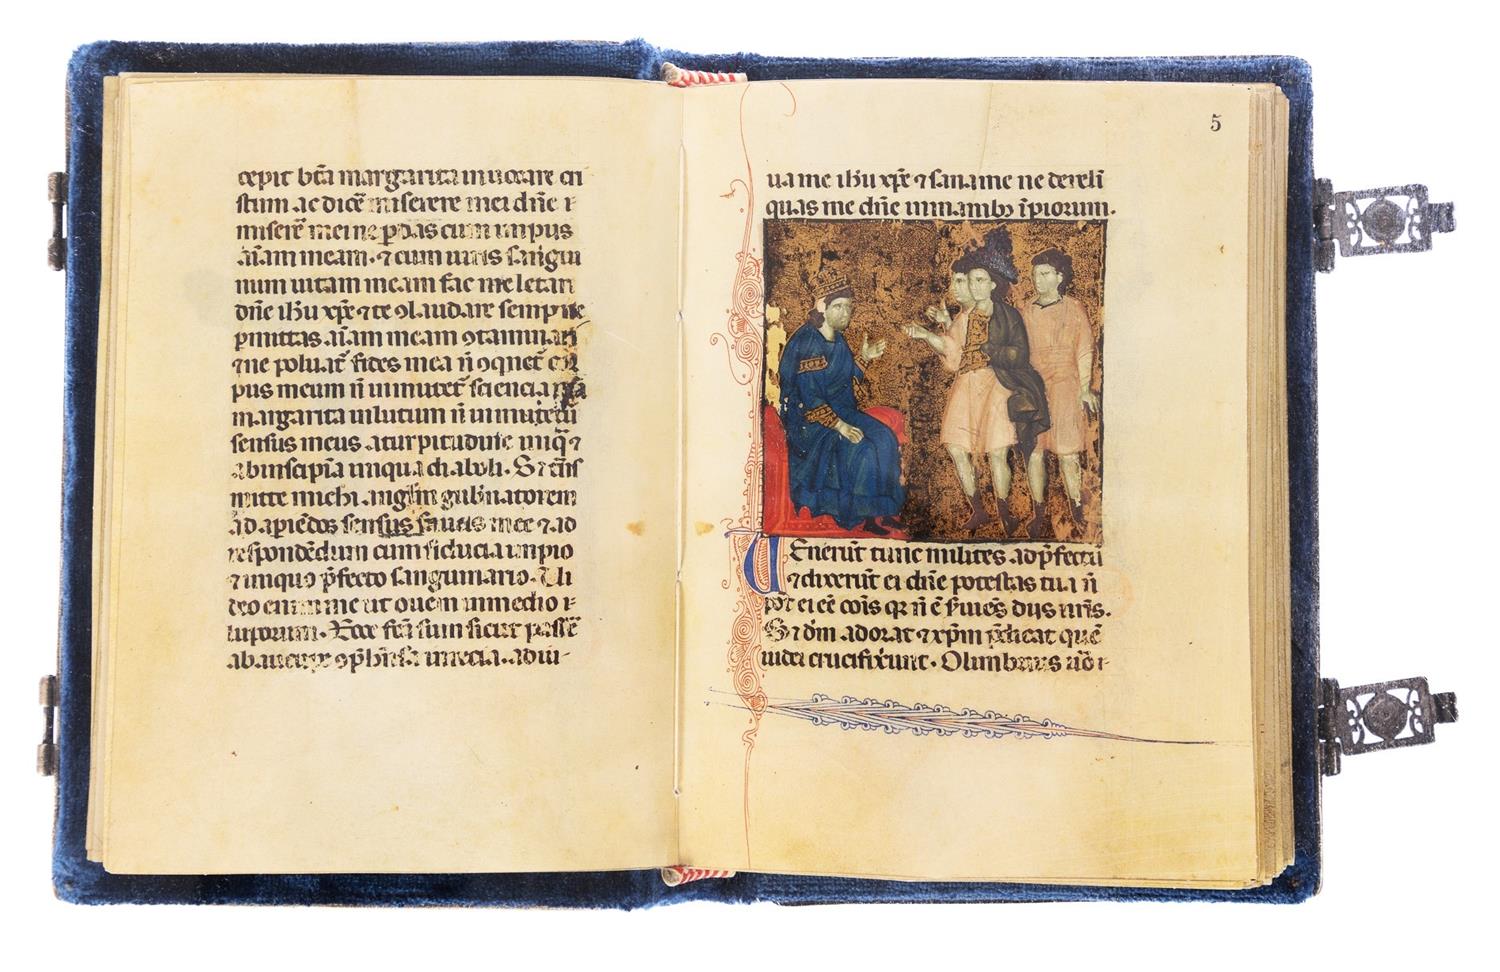 cepit btã margarita inuocare cri
stum ac dicẽ miserere mei dñe ⁊
miserẽ mei ne ꝑdas cum impiis
aĩam meam · ⁊ cum uiris sangui
num uitam meam fac me letari
dñe ihu xpẽ ⁊ te ꝯlaudare semp ne
ꝑmittas aĩam meam ꝯtaminari
⁊ ne poluat᷑ fides mea ñ ꝯqnet᷑ cor
pus meum ñ inmutet᷑ sciencia
margarita in lutum ñ inmutetur
sensus meus a turpitudine iniq̃ ⁊
ab insipĩa iniqua diaboli · S⁊
mitte michi anglm gub̃natorem
ad apiẽdos sensus ⁊ ad
respondẽdum cum fiducia impio
⁊ iniquo p̃fecto sanguinario · Ui
deo enim me ut ouem in medio ⁊
luporum · Ecce fcã sum sicut passẽ
ab aucupe ꝯp̃hẽsa in recia · adiu-
5
ua me ihu xpẽ ⁊ sana me ne dereli
quas me dñe in manib; ĩpiorum.
UEnerũt tunc milites ad p̃fectũ
⁊ dixerũt ei dñe potestas tua ñ
pot ei eẽ coĩs qr ñ ẽ s̃uiẽs diis nr̃is.
S⁊ dm̃ adorat ⁊ xp̃m p̃dicat quẽ
iudei crucifixerunt · Olimbrius